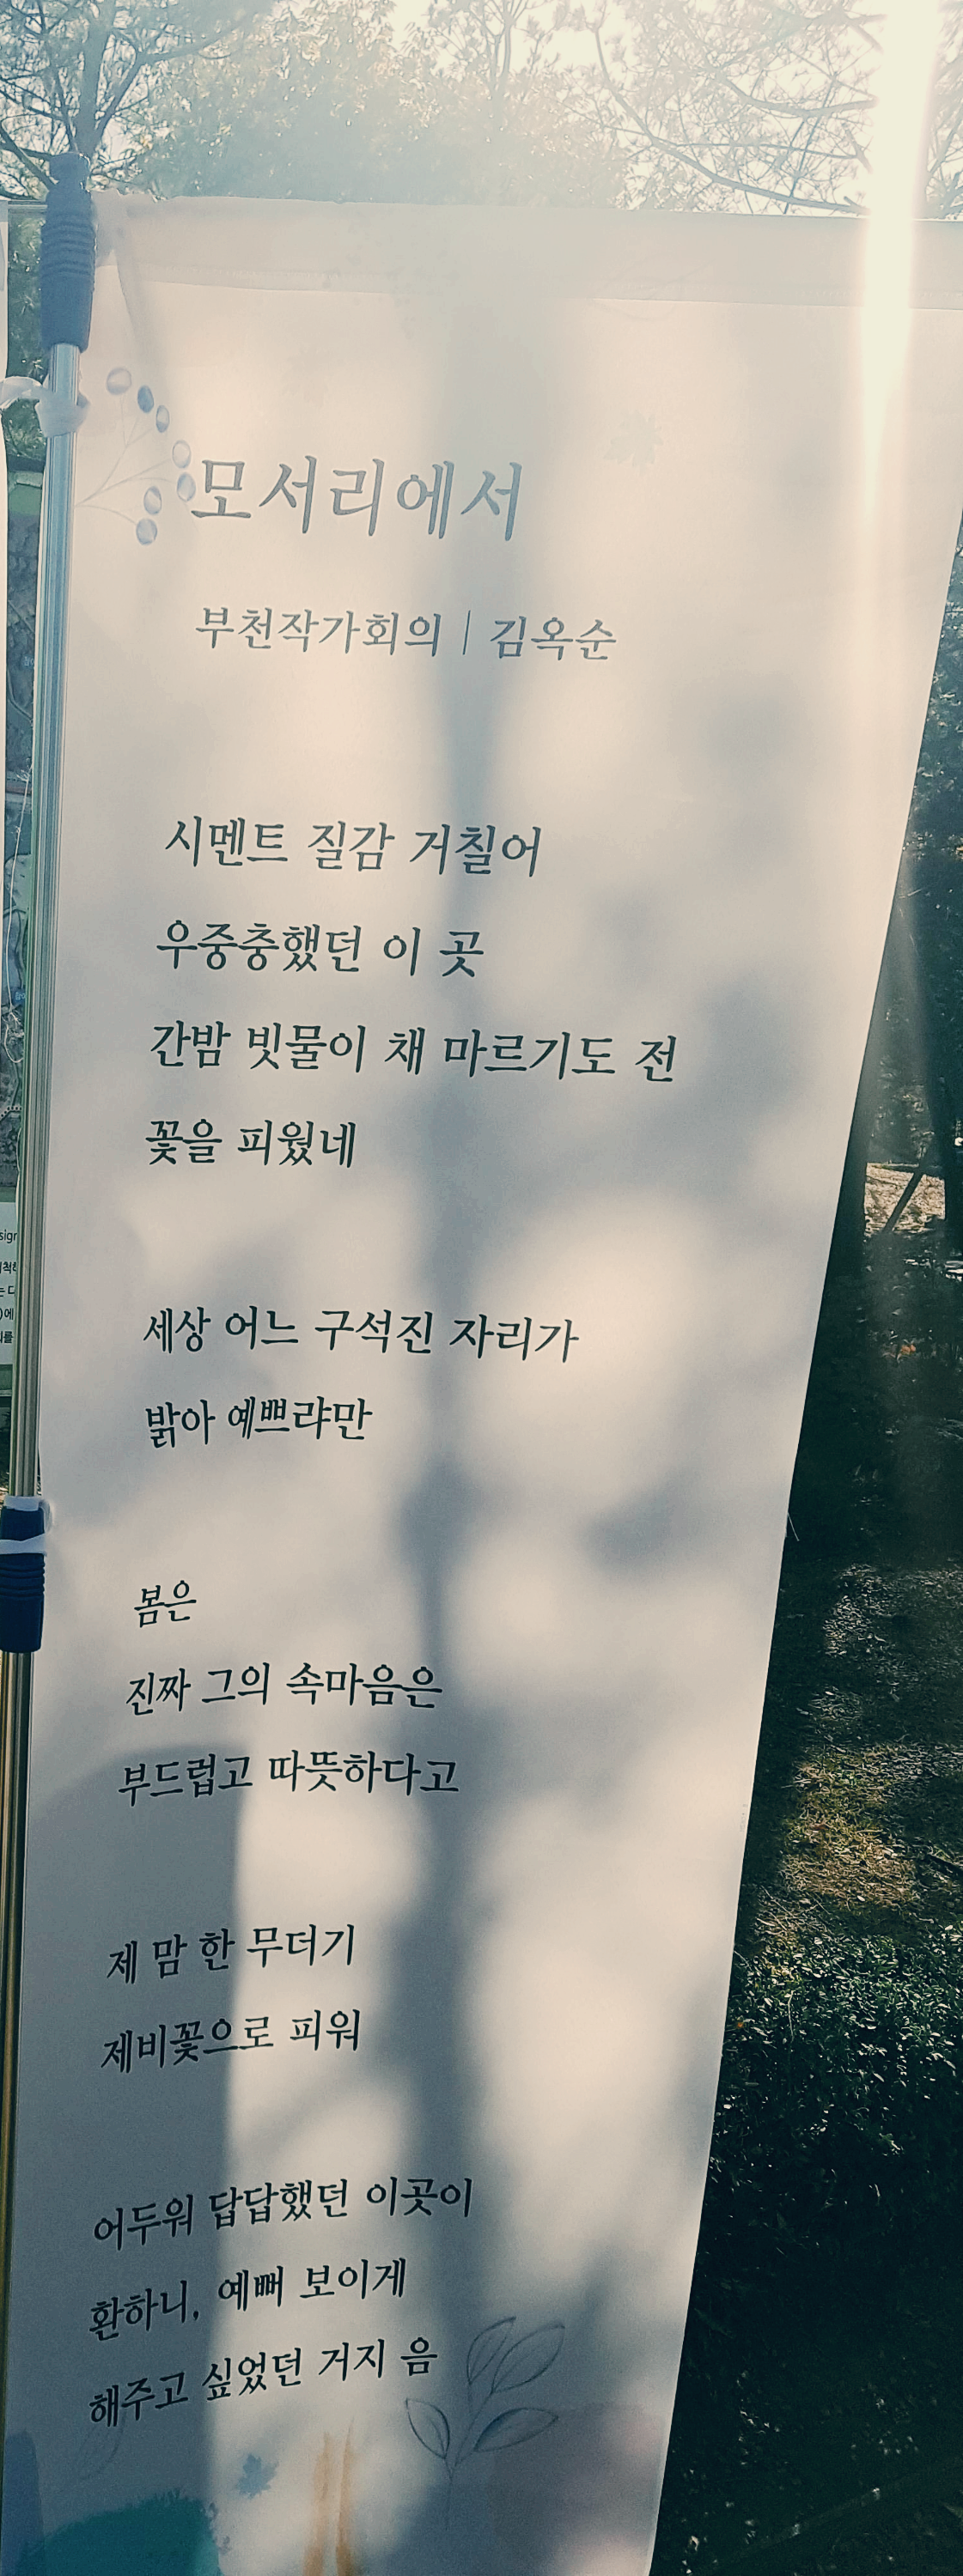 모서리에서
부천작가회의 | 김옥순
시멘트 질감 거칠어
우중충했던 이 곳
간밤 빗물이 채 마르기도 전
꽃을 피웠네
세상 어느 구석진 자리가
밝아 예쁘랴만
봄은
진짜 그의 속마음은
부드럽고 따뜻하다고
제 맘 한 무더기
제비꽃으로 피워
어두워 답답했던 이곳이
환하니, 예뻐 보이게
해주고 싶었던 거지 음